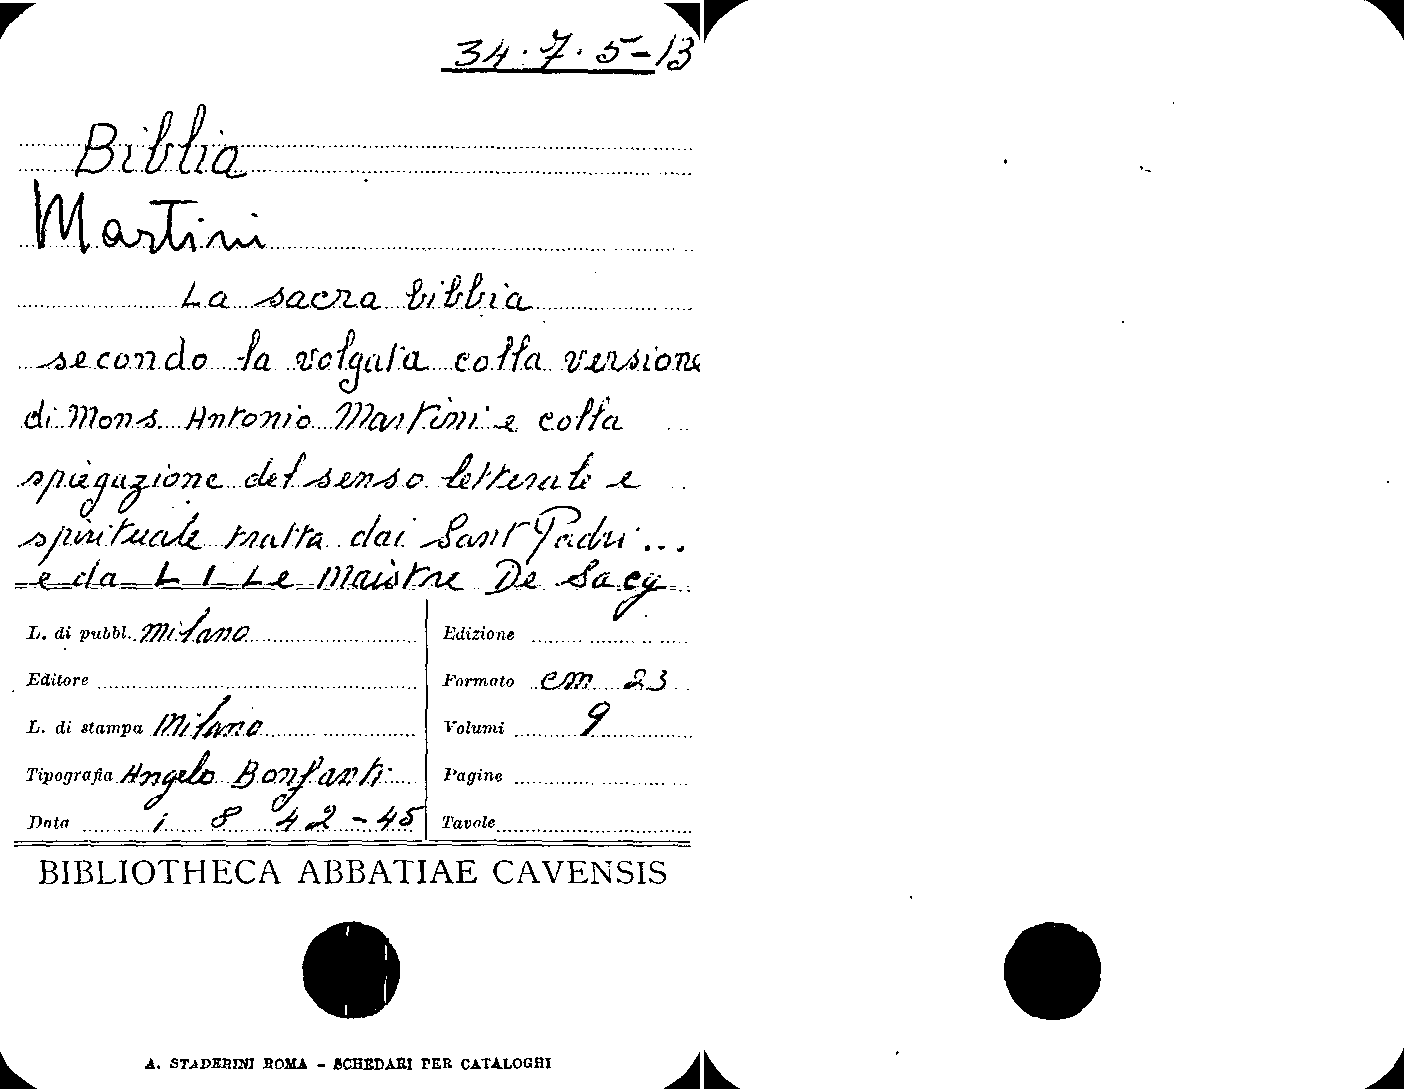 34.7.5-13
Biblia
Martini
La sacra bibbia
secondo la volgata colla versione
di Mons. Antonio Martini e colla
spiegazione del senso letterale e
spirituale tratta dai Sant Padri ...
e da L I Le Maistre De Sacy
L. di pubbl. Milano
Edizione
Editore
Formato cm 23
L. di stampa Milano
Volumi 9
Tipografia Angelo Bonfanti
Pagine
Data 1 8 42-45
Tavole
BIBLIOTHECA ABBATIAE CAVENSIS
A. STADERINI ROMA - SCHEDARI PER CATALOGHI